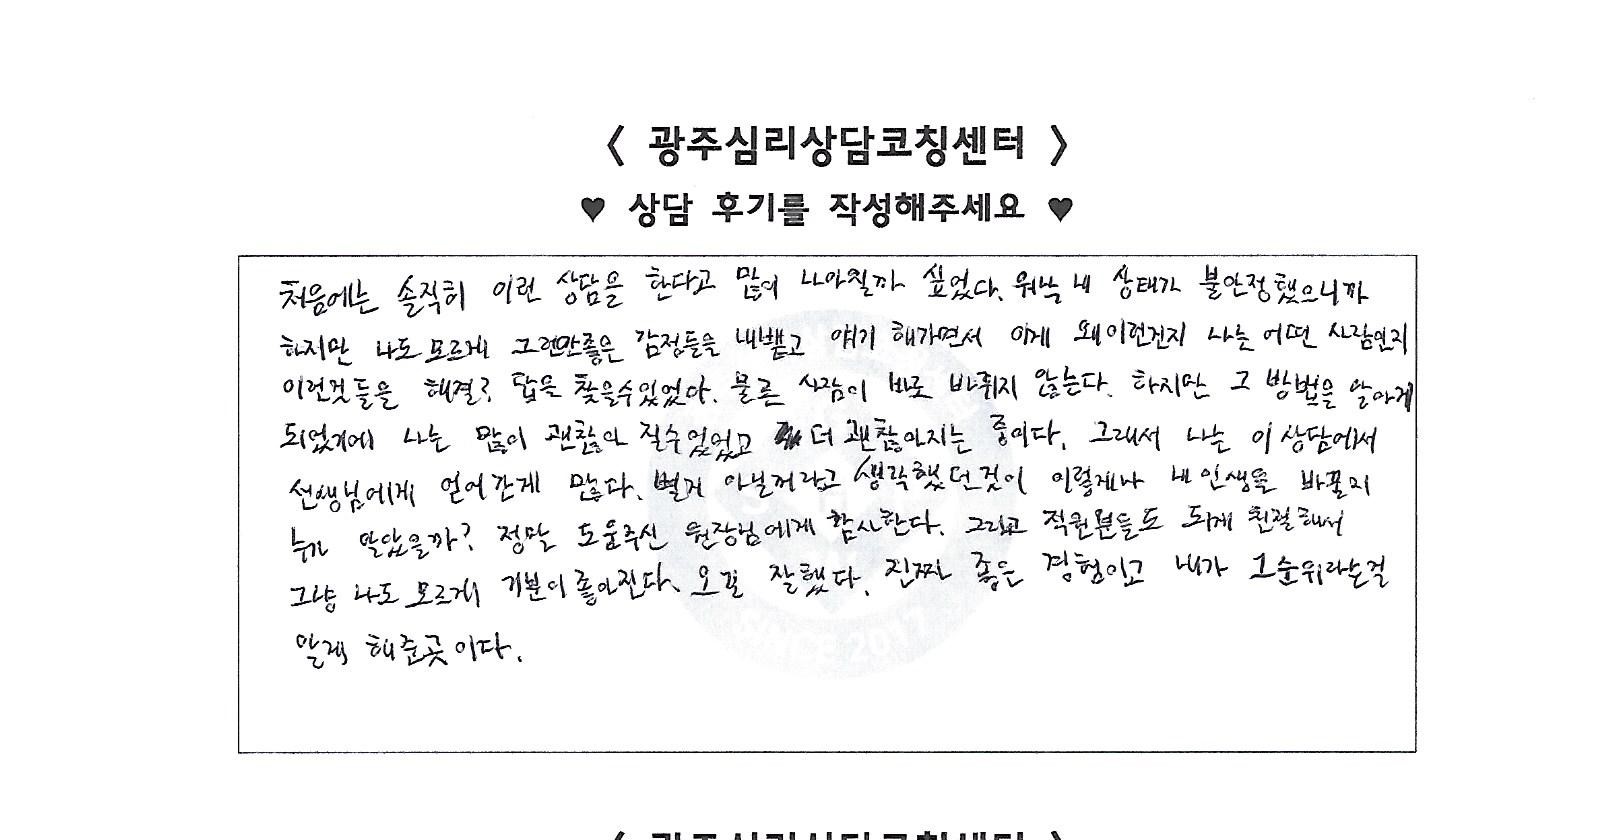 < 광주심리상담코칭센터 >
♥ 상담 후기를 작성해주세요 ♥
처음에는 솔직히 이런 상담을 한다고 많이 나아질까 싶었다. 워낙 내 상태가 불안정했으니까
하지만 나도 모르게 그런안좋은 감정들을 내뱉고 얘기 해가면서 이게 왜이런건지 나는 어떤 사람인지
이런것들을 해결? 답을 찾을수있었다. 물론 사람이 바로 바뀌지 않는다. 하지만 그 방법을 알아게
되었기에 나는 많이 괜찮아 질수있었고 더 괜찮아지는 중이다. 그래서 나는 이 상담에서
선생님에게 얻어간게 많다. 별거 아닐꺼라고 생각했던것이 이렇게나 내 인생을 바꿀지
누가 알았을까? 정말 도움주신 원장님에게 감사한다. 그리고 직원분들도 되게 친절해서
그냥 나도 모르게 기분이 좋아진다. 오길 잘했다. 진짜 좋은 경험이고 내가 1순위라는걸
알게 해준곳이다.
SINCE 2017
< 광주심리상담코칭센터 >